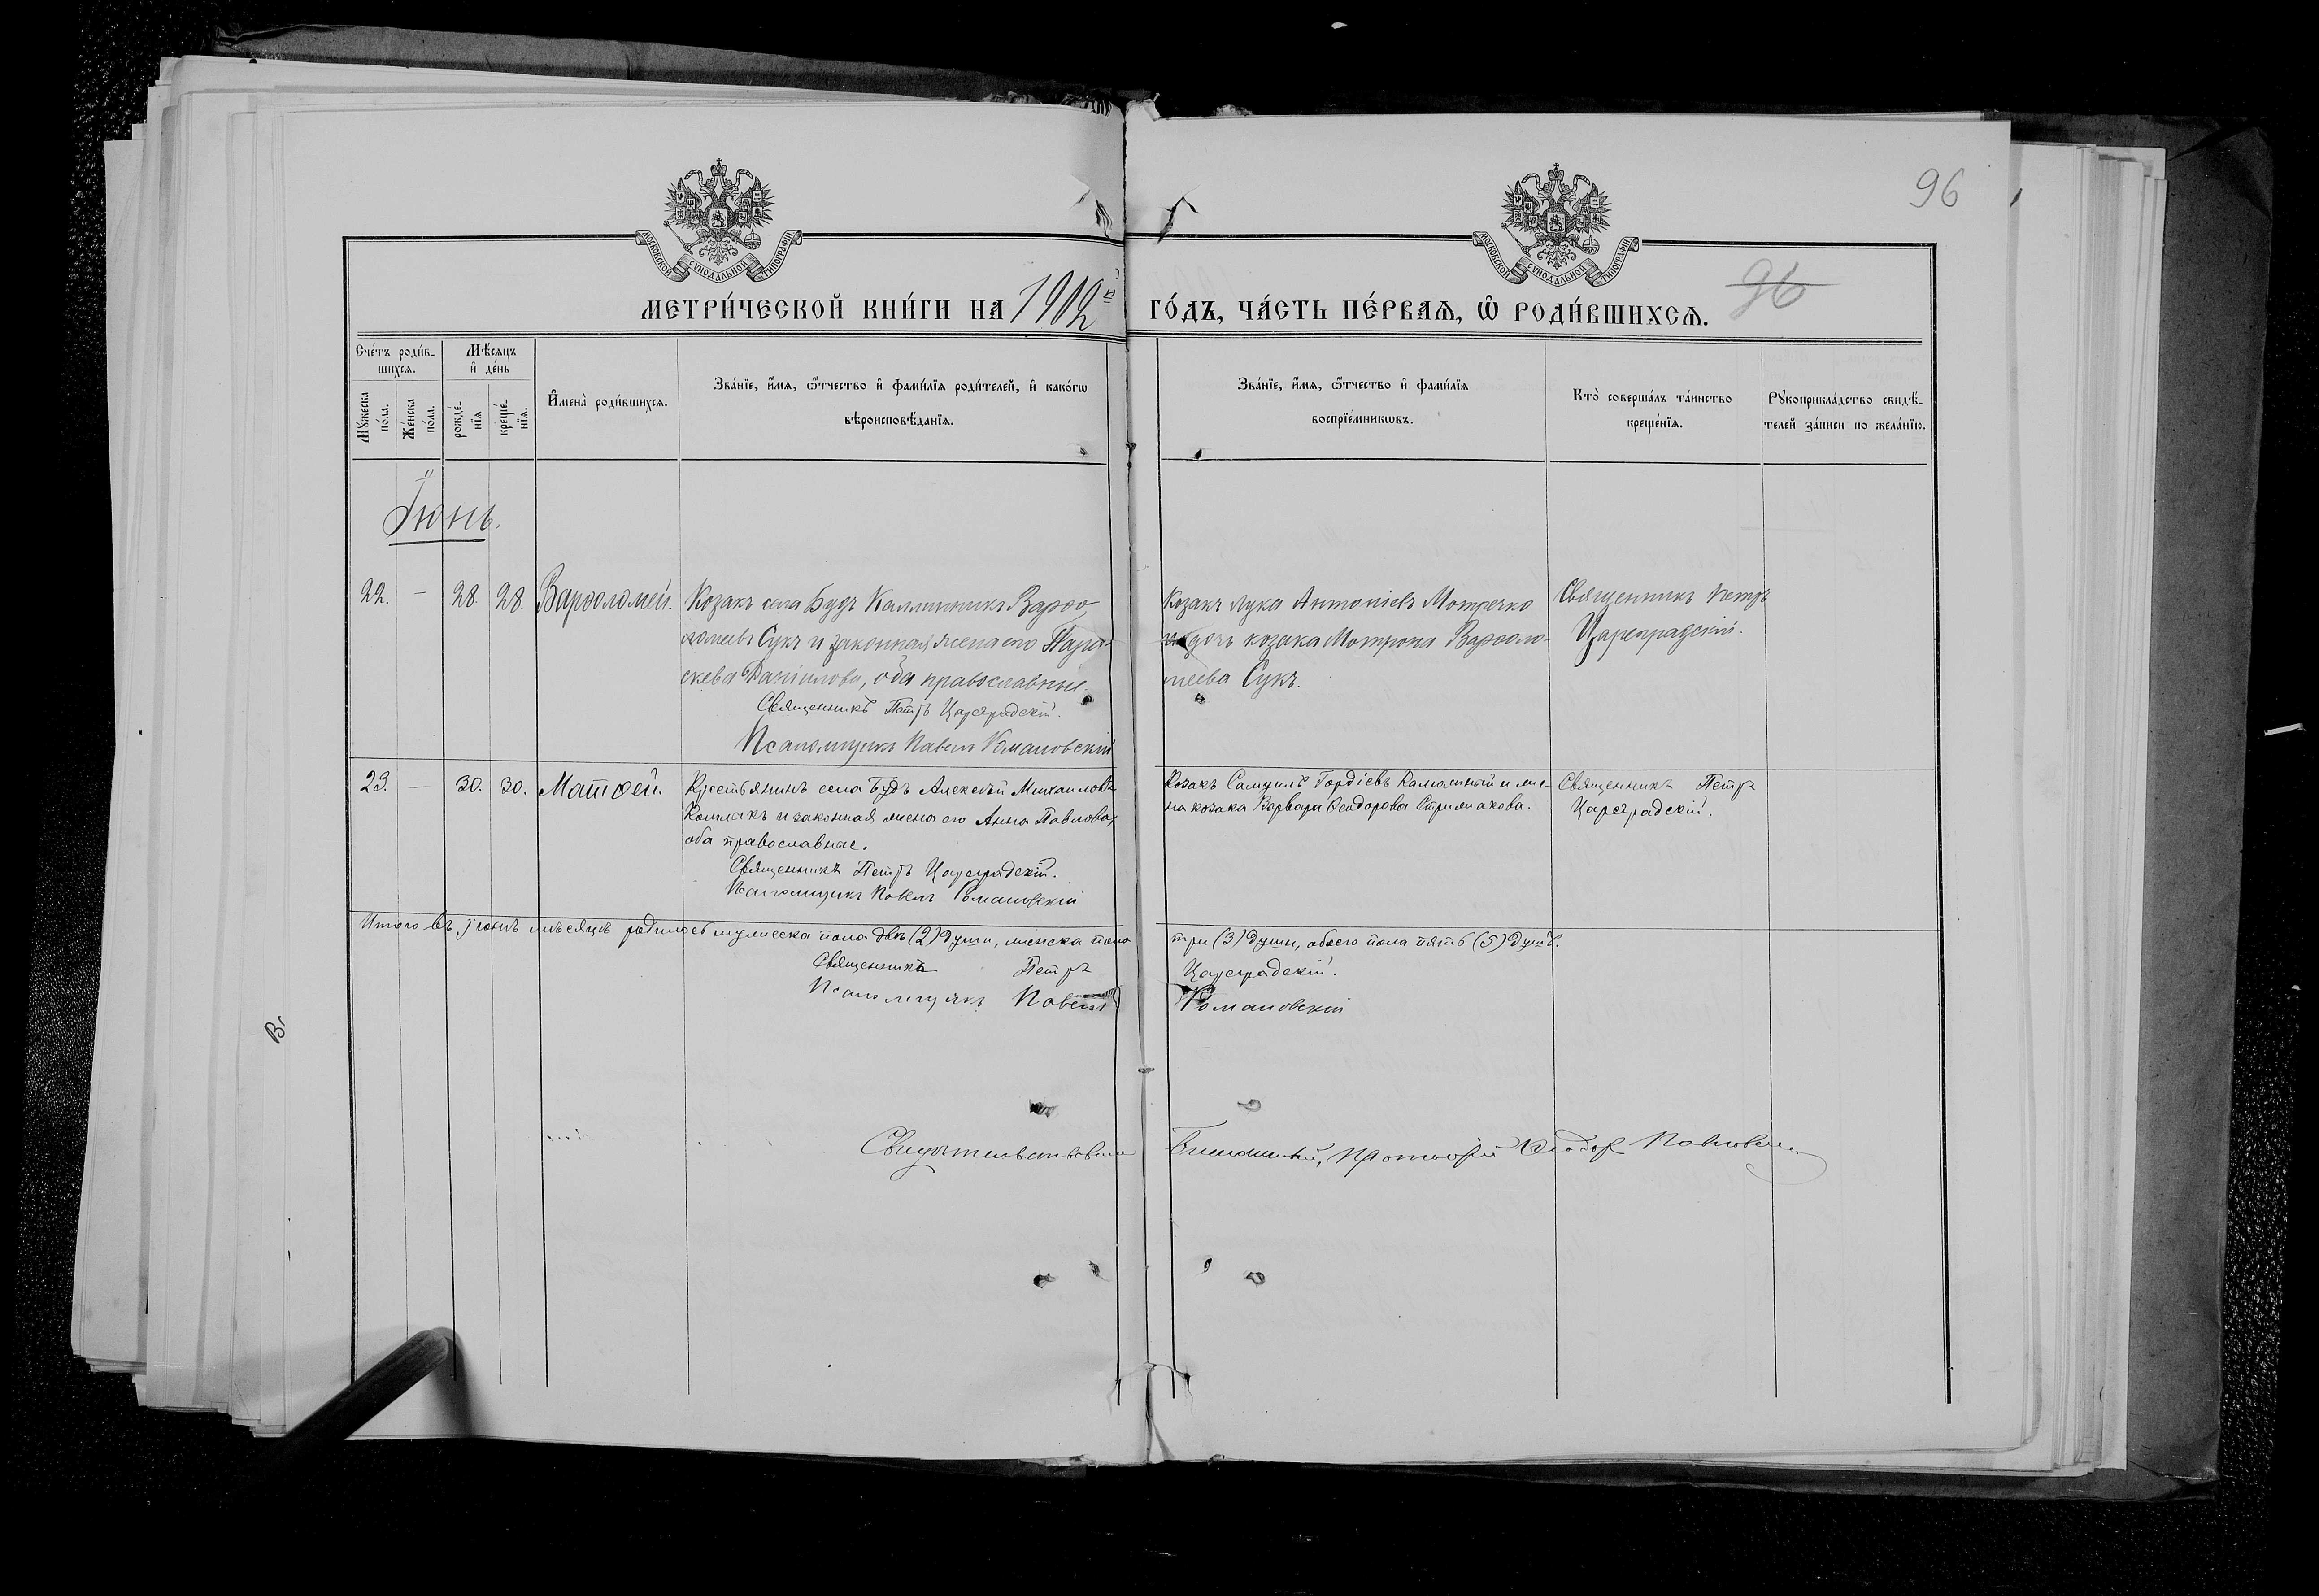 96
МОСКОВСКОЙ СѴНОДАЛЬНОЙ ТИПОГРАФІИ
МОСКОВСКОЙ СѴНОДАЛЬНОЙ ТИПОГРАФІИ
МЕТРИ́ЧЕСКОЙ КНИ́ГИ НА 1902й ГО́ДЪ, ЧА́СТЬ ПЕ́РВАѦ, Ѿ РОДИ́ВШИХСѦ. 96
Сче́тъ роди́вшихсѧ.
Мꙋ́жеска по́ла.
Же́нска по́ла.
Мѣ́сѧцъ и҆ де́нь
рожде́нїѧ
креще́нїѧ.
И҆мена̀ роди́вшихсѧ.
Зва́нїе, и҆́мѧ, ѻ҆́тчество и҆ фами́лїѧ роди́телей, и҆ како́гѡ
вѣроисповѣ́данїѧ.
Зва́нїе, и҆́мѧ, ѻ҆́тчество и҆ фами́лїѧ
воспрїе́мникѡвъ.
Кто̀ соверша́лъ та́инство
креще́нїѧ.
Рꙋкоприкла́дство свидѣ́телей за́писи по жела́нїю.
Іюнь.
22. — 28. 28. Варѳоломей.
Козакъ села Будъ Каллиникъ Варѳо
ломеевъ Сукъ и законная жена его Пара
скева Даніилова, оба православные.
Священникъ Петръ Цареградскій.
Псаломщикъ Павелъ Романовскій
Козакъ Лука Антоніевъ Мотречко
и дочь козака Мотрона Варѳоло-
меева Сукъ.
Священникъ Петръ
Цареградскій.
23. — 30. 30. Матѳей.
Крестьянинъ села Будъ Алексѣй Михаиловъ
и законная жена его Анна Павлова,
оба православные.
Священникъ Петръ Цареградскій.
Псаломщикъ Павелъ Романовскій
Козакъ Самуилъ Гордіевъ и же-
на козака Варвара Ѳеодорова
Священникъ Петръ
Цареградскій.
Итого въ Іюнѣ мѣсяцѣ родилось мужеска пола двѣ (2) души, женска пола три (3) души, обоего пола пять (5) душъ.
Священникъ Петръ Цареградскій.
Псаломщикъ Павелъ Романовскій
Свидѣтельствовалъ Благочинный, Протоіерей Ѳеодоръ